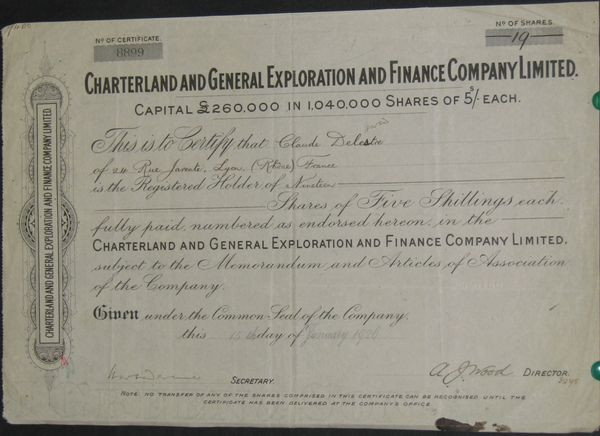 No OF CERTIFICATE.
8899
No OF SHARES.
19
CHARTERLAND AND GENERAL EXPLORATION AND FINANCE COMPANY LIMITED.
CAPITAL £260,000 IN 1,040,000 SHARES OF 5s/- EACH.
This is to Certify that Claude Delestre
of 24 Rue Jarente, Lyon, (Rhône) France
is the Registered Holder of Nineteen
Shares of Five Shillings each
fully paid, numbered as endorsed hereon, in the
CHARTERLAND AND GENERAL EXPLORATION AND FINANCE COMPANY LIMITED.
subject to the Memorandum and Articles of Association
of the Company.
Given under the Common Seal of the Company,
this 15th day of January 1926
SECRETARY.
A. J. Wood DIRECTOR.
NOTE. NO TRANSFER OF ANY OF THE SHARES COMPRISED IN THIS CERTIFICATE CAN BE RECOGNISED UNTIL THE
CERTIFICATE HAS BEEN DELIVERED AT THE COMPANY'S OFFICE.
CHARTERLAND AND GENERAL EXPLORATION AND FINANCE COMPANY LIMITED.